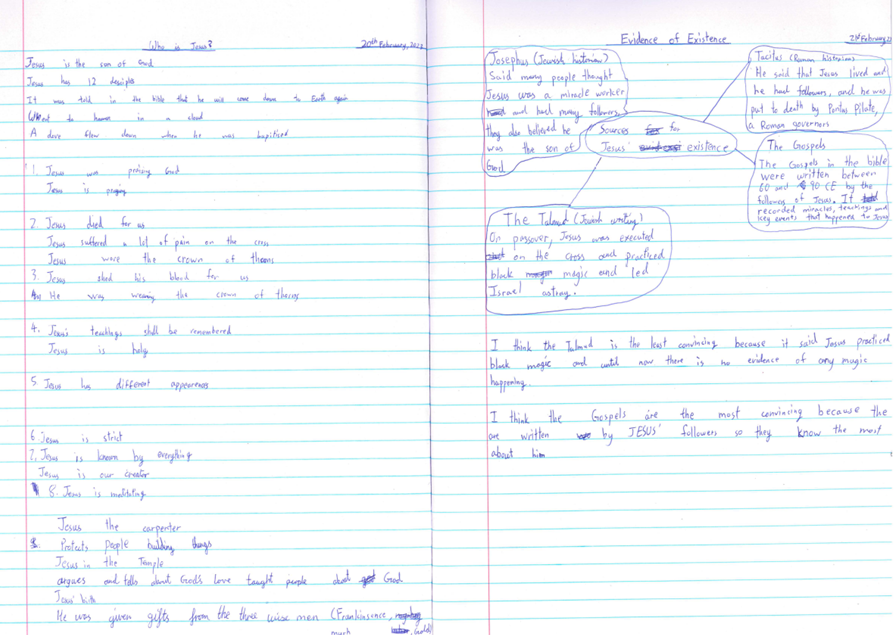 Who is Jesus?
20th February, 
Jesus is the son of God
Jesus has 12 desiples
It was told in the bible that he will come down to Earth again
Went to heaven in a cloud
A dove flew down when he was baptised
1. Jesus was praising God
Jesus is praying
2. Jesus died for us
Jesus suffered a lot of pain on the cross
Jesus wore the crown of thorns
3. Jesus shed his blood for us
He was wearing the crown of thorns
4. Jesus's teachings shall be remembered
Jesus is holy
5. Jesus has different appearences
6. Jesus is strict
7. Jesus is known by everything
Jesus is our creator
8. Jesus is meditating
Jesus the carpenter
Protects people building things
Jesus in the Temple
argues and tells about God's love taught people about God
Jesus' birth
He was given gifts from the three wise men (Frankinsence,
Gold)
Evidence of Existence
21st February
Josephus (Jewish historian)
Said many people thought
Jesus was a miracle worker
and had many followers
they also believed he
was the son of
God
Sources for
Jesus' existence
Tacitus (Roman historian)
He said that Jesus lived and
he had followers, and he was
put to death by Pontus Pilate,
a Roman governers
The Gospels
The Gospels in the bible
were written between
60 and 90 CE by the
followers of Jesus. It
recorded miracles, teachings and
key events that happened to Jesus
The Talmud (Jewish writing)
On passover, Jesus was executed
on the cross and practiced
black magic and led
Israel astray.
I think the Talmud is the least convincing because it said Jesus practiced
black magic and until now there is no evidence of any magic
happening.
I think the Gospels are the most convincing because the
are written by JESUS' followers so they know the most
about him